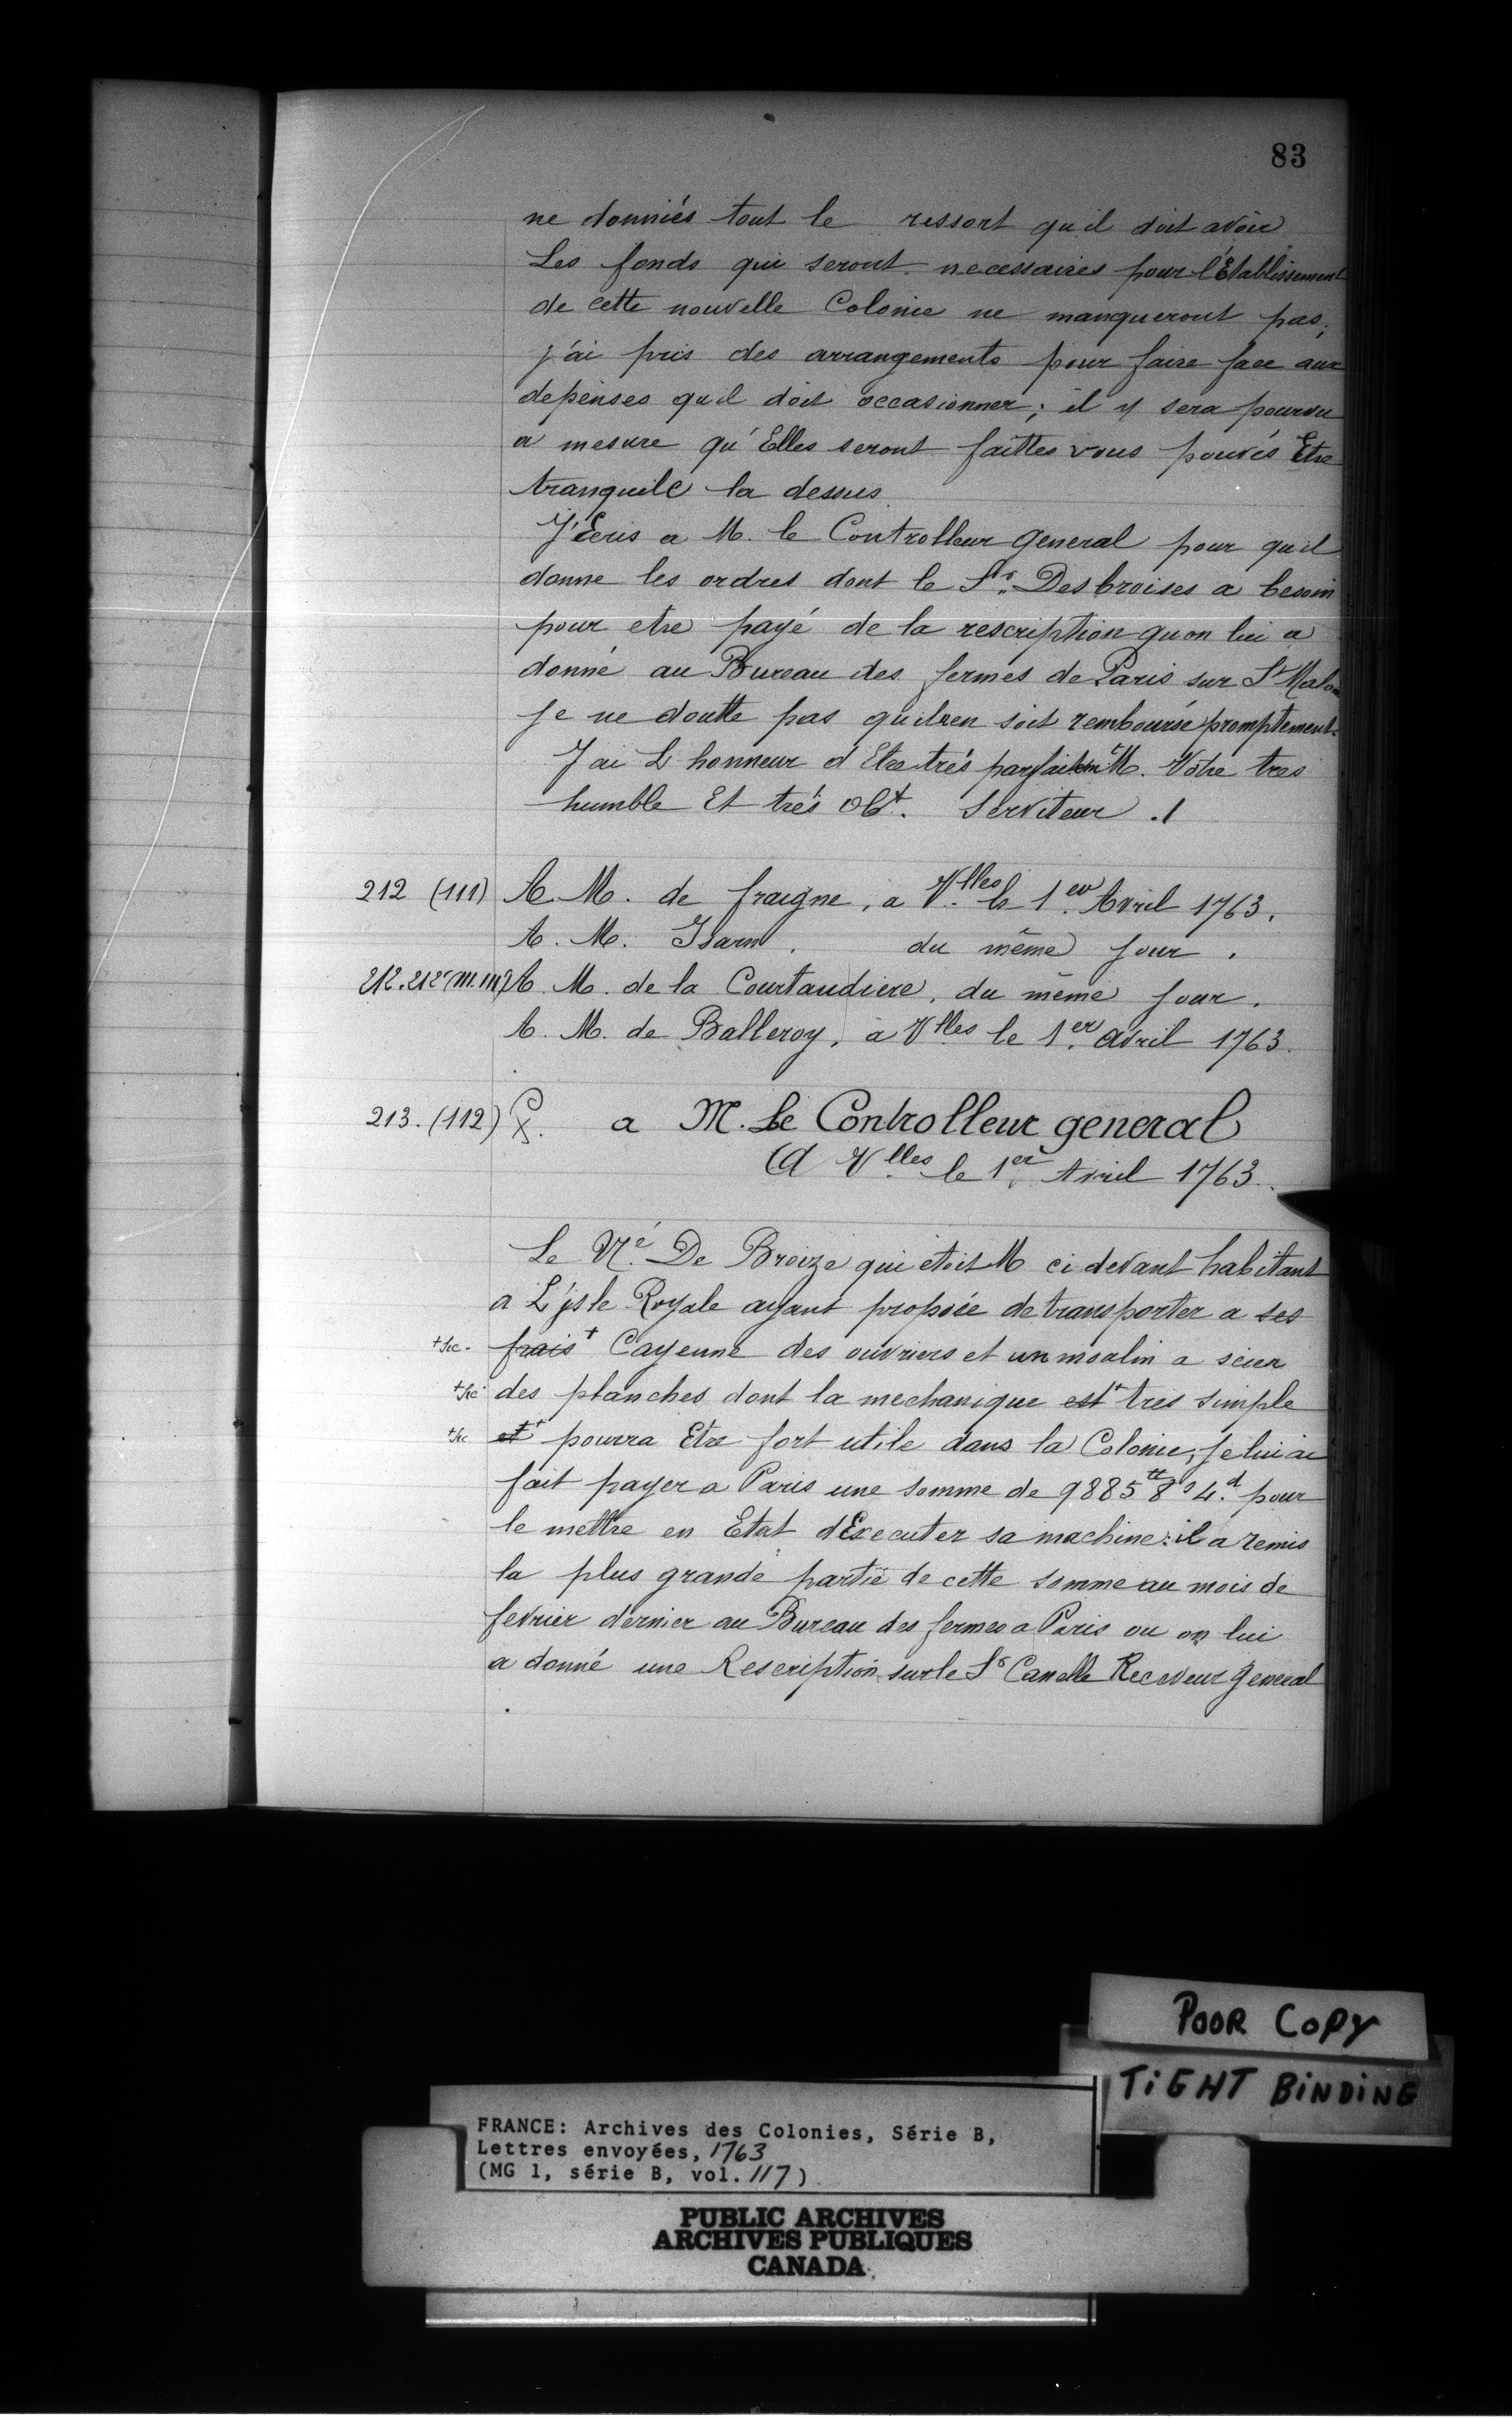 83
ne donniés tout le ressort qu'il doit avoir
Les fonds qui seront necessaires pour l'Etablissement
de cette nouvelle Colonie ne manqueront pas;
j'ai pris des arrangements pour faire face aux
depenses qu'il doit occasionner; il y sera pourvu
a mesure qu'Elles seront faittes vous pouvés Etre
tranquile la dessus
J'Ecris a M. le Controlleur general pour quil
donne les ordres dont le Sr. Desbroises a besoin
pour etre payé de la rescription quon lui a
donné au Bureau des fermes de Paris sur St Malo
Je ne doutte pas quil en soit remboursé promptement.
J'ai L honneur d Etre trés parfaitemt M. Votre tres
humble Et trés obt. Serviteur ./
212 (111) A. M. de fraigne, a Vlles le 1er Avril 1763.
A. M. Isarn. du même jour.
212.212 (111.111) A. M. de la Courtaudiere, du même jour.
A. M. de Balleroy, à Vlles le 1er avril 1763.
213. (112) a M. Le Controlleur general
A Vlles le 1er Avril 1763.
Le Né De Broize qui etoit M ci devant habitant
a L'jsle Royale ayant proposée de transporter a ses
+sic. frais+ Cayenne des ouvriers et un moulin a scier
+sic des planches dont la mechanique est+ tres simple
+sic et+ pourra Etre fort utile dans la Colonie, je lui ai
fait payer a Paris une somme de 9885tt 8s 4.d pour
le mettre en Etat d'Executer sa machine: il a remis
la plus grande partie de cette somme au mois de
fevrier dernier au Bureau des fermes a Paris ou on lui
a donné une Rescription sur le Sr Canelle Receveur general
POOR COPY
TIGHT BINDING
FRANCE: Archives des Colonies, Série B,
Lettres envoyées, 1763
(MG 1, série B, vol. 117)
PUBLIC ARCHIVES
ARCHIVES PUBLIQUES
CANADA